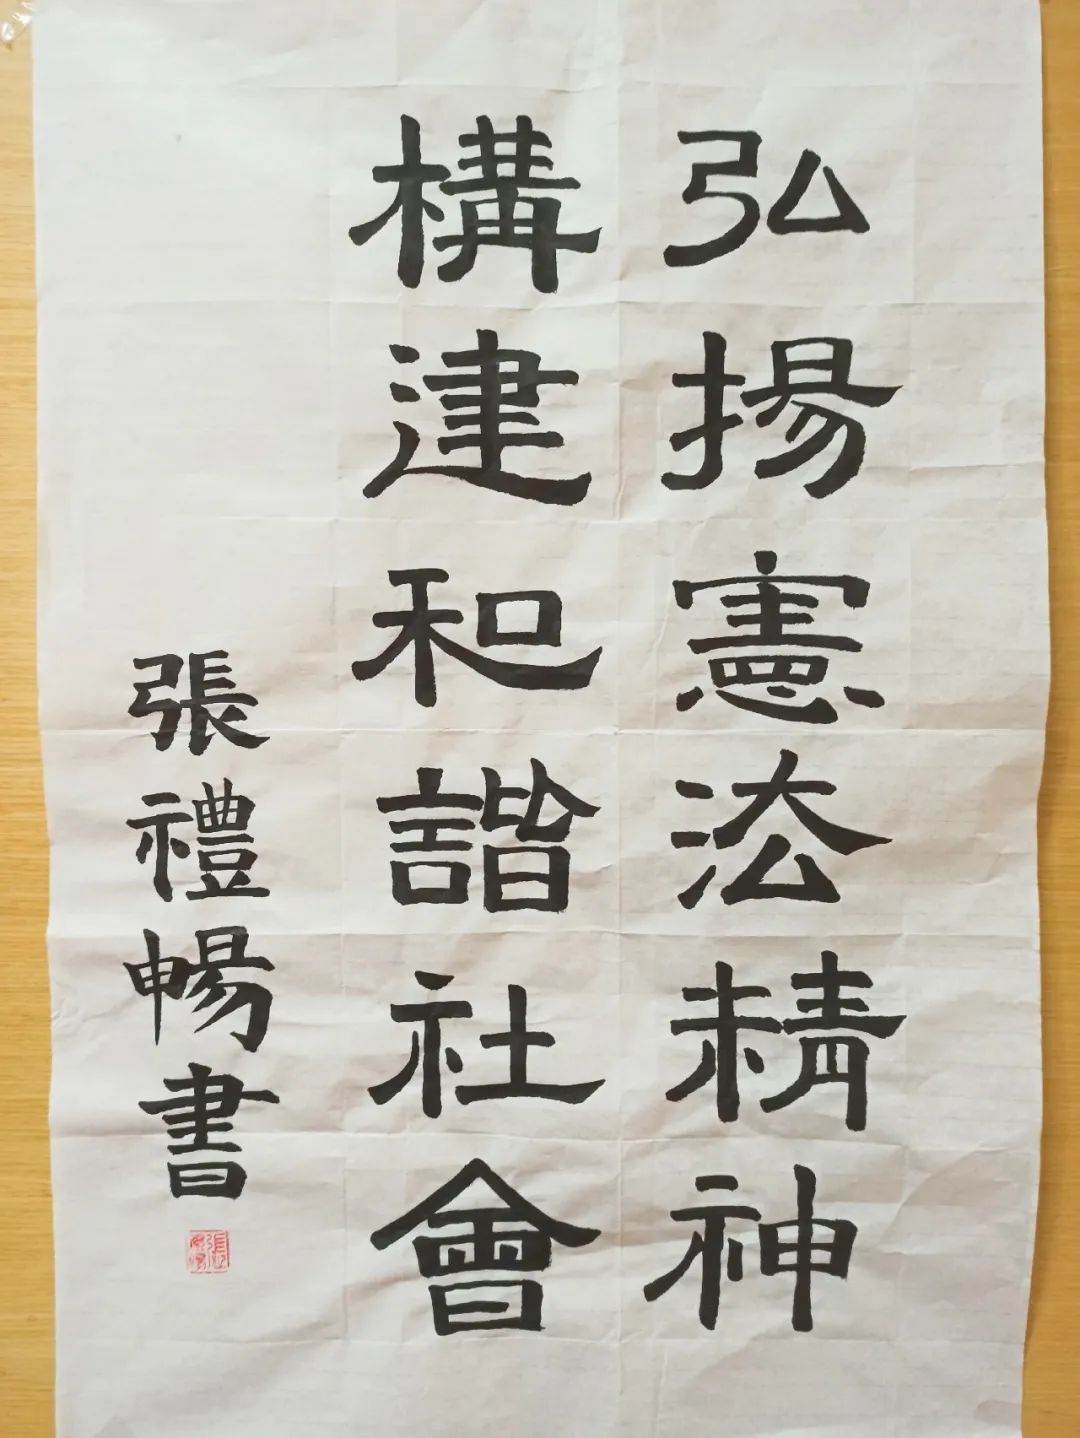 弘揚憲法精神
構建和諧社會
張禮暢書